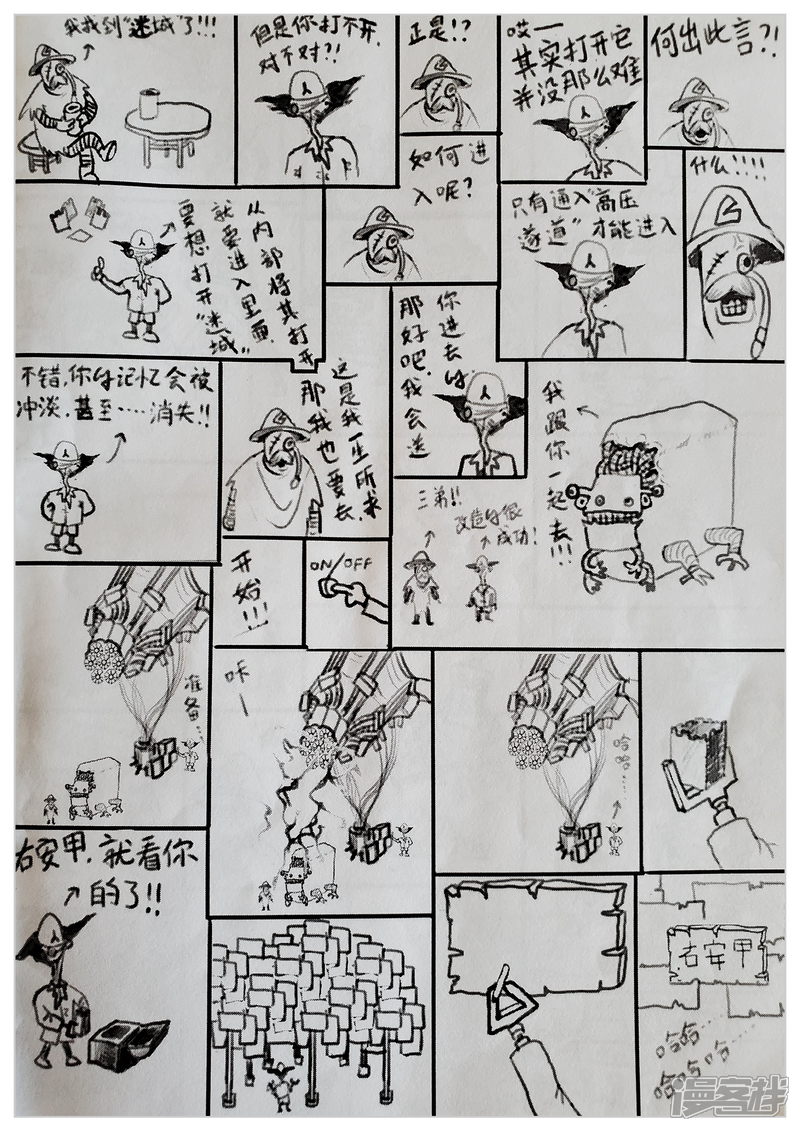 我找到“迷城”了!!!
但是你打不开,
对不对?!
正是!?
哎一
其实打开它
并没那么难
何出此言?!
如何进
入呢?
什么!!!!
要想打开“迷城”
就要进入里面,
从内部将其打开
只有通入“高压
遂道”才能进入
不错,你的记忆会被
冲淡,甚至……消失!!
这是我一生所求
那我也要去.
你进去的
那好吧,我会送
三弟!!
改造的很
成功!
我跟你一起去!!!
开始!!!
ON/OFF
准备…
咔一
哈哈…
右安甲,就看你
的了!!
右安甲
哈哈……
哈哈哈…
漫客栈